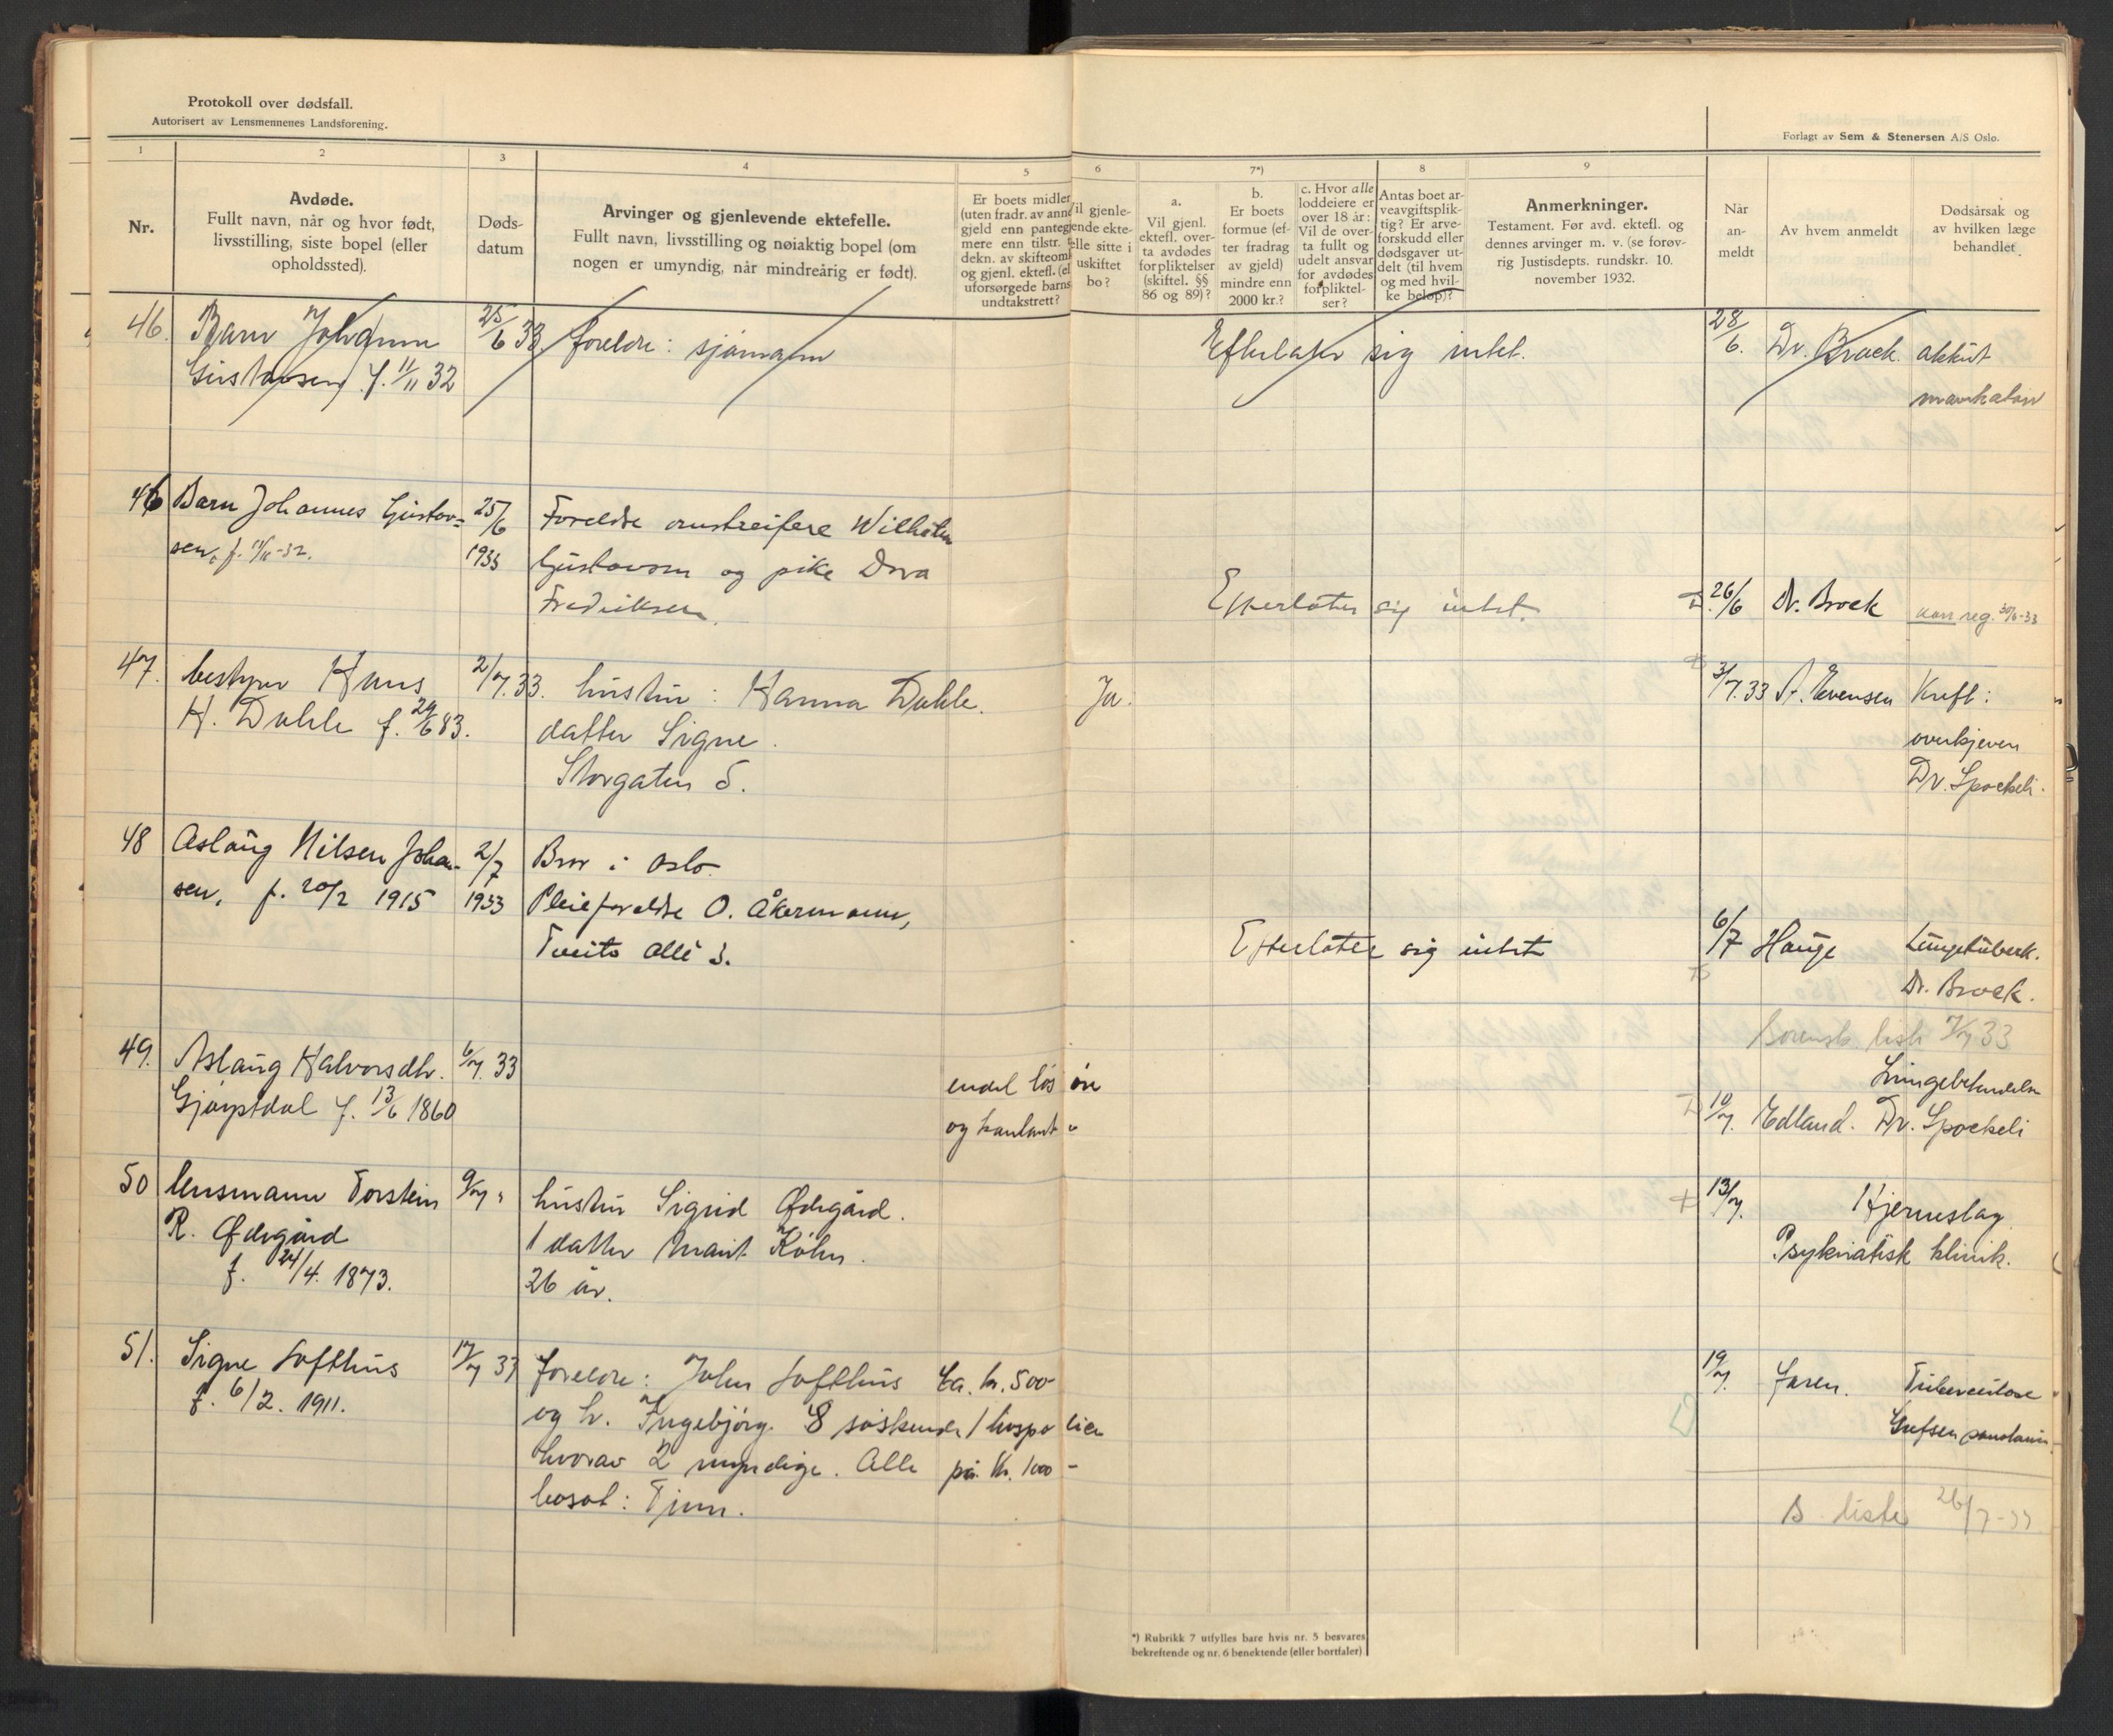 Protokoll over dødsfall.
Autorisert av Lensmennenes Landsforening.
Forlagt av Sem & Stenersen A/S Oslo.
1 2 3 4 5 6 7*) 8 9
Nr.
Avdøde.
Fullt navn, når og hvor født,
livsstilling, siste bopel (eller
opholdssted).
Døds-
datum
Arvinger og gjenlevende ektefelle.
Fullt navn, livsstilling og nøiaktig bopel (om
nogen er umyndig, når mindreårig er født).
Er boets midler
(uten fradr. av ann
gjeld enn panteg
mere enn tilstr. t
dekn. av skifteomk
og gjenl. ektefl. (el
uforsørgede barns
undtakstrett?
Vil gjenle-
ende ekte-
elle sitte i
uskiftet
bo?
a.
Vil gjenl.
ektefl. over-
ta avdødes
forpliktelser
(skiftel. §§
86 og 89)?
b.
Er boets
formue (ef-
ter fradrag
av gjeld)
mindre enn
2000 kr.?
c. Hvor alle
loddeiere er
over 18 år:
Vil de over-
ta fullt og
udelt ansvar
for avdødes
forpliktel-
ser?
Antas boet ar-
veavgiftsplik-
tig? Er arve-
forskudd eller
dødsgaver ut-
delt (til hvem
og med hvil-
ke beløp)?
Anmerkninger.
Testament. Før avd. ektefl. og
dennes arvinger m. v. (se forøv-
rig Justisdepts. rundskr. 10.
november 1932.
Når
an-
meldt
Av hvem anmeldt
Dødsårsak og
av hvilken læge
behandlet
46. Barn Johannes 25/6 33. foreldre: sjømann Efterlater sig intet. 28/6. Dr. Brock. akkut
Gustavsen f. 11/11 32
46 Barn Johannes Gustav- 25/6 Foreldre omstreifere Wilhelm
sen, f. 11/11-32. 1933 Gustavsen og pike Dora
Fredriksen. Efterlater sig intet. 26/6 Dr. Brock reg. 30/6-33
47. bestyrer Hans 2/7.33. hustru: Hanna Dahle. Ja. 3/7.33 A. Evensen Kreft:
H. Dahle f. 29/6 83. datter Signe. overkjeven
Storgaten 5. Dr. Spockeli.
48 Aslaug Nilsen Johan- 2/7 Bror i Oslo.
sen, f. 20/2 1915 1933 Pleieforeldre O. Åkermann,
Tveito Allé 3. Efterlater sig intet 6/7 Hauge Lungetuberk.
Dr. Brock.
Sorensk. liste 7/7 33
49. Aslaug Halvorsdtr. 6/7. 33 endel løsøre Lungebetendelse
Gjøystdal f. 13/6 1860 og kontant 10/7. Edland. Dr. Spockeli
50 lensmann Torstein 9/7 " hustru Sigrid Ødegård. 13/7. Hjerneslag
R. Ødegård 1 datter Marit Køhn. Psykiatisk klinik.
f. 24/4. 1873. 26 år.
51. Signe Lofthus 17/7 33 foreldre: John Lofthus Ca. kr. 500 19/7. faren. Tuberculose
f. 6/2. 1911. og h. Ingebjørg. 8 søskende 1 Grefsen
hvorav 2 myndige. Alle på kr. 1000 -
bosat: Tinn.
B liste 26/7-33
*) Rubrikk 7 utfylles bare hvis nr. 5 besvares
bekreftende og nr. 6 benektende (eller bortfaler)